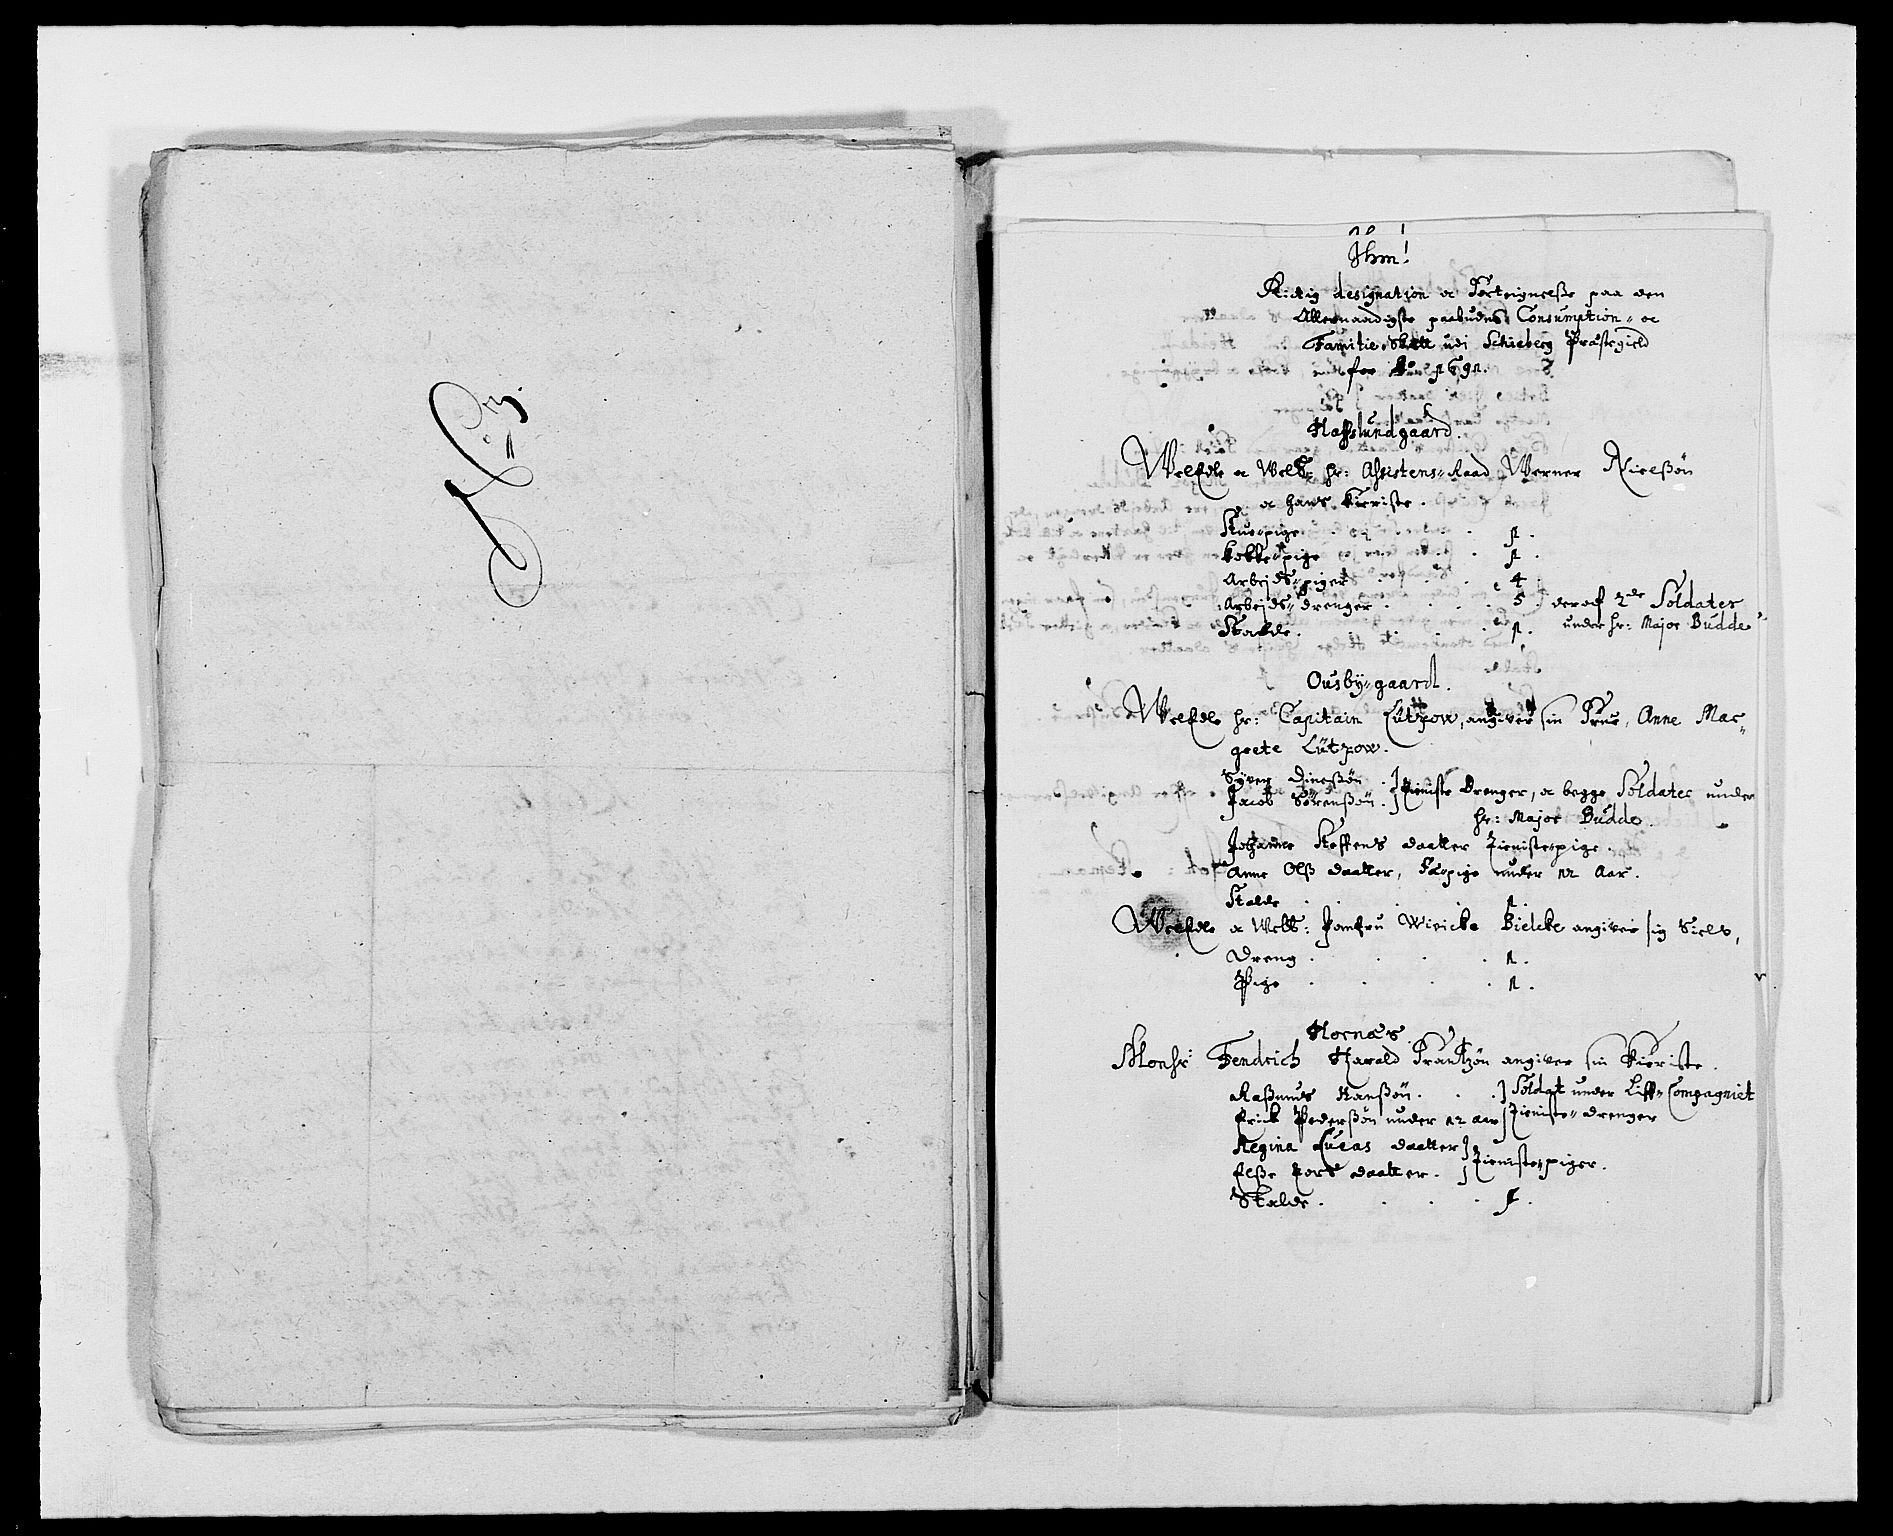 Jhm!
Rigtig designation oc Forteignelße paa den
Allernaadigste paabudne Consumption- oc
Familie Skatt udi Schieberg Præstegield
for Ao 1691.
Hafslundgaard.
WelEdle oc Welb: hr: Assistens-Raad Werner Nielßøn
oc hans Kieriste.
Stuepige 1.
Kokkepige 1.
Arbejds-piger 4
Arbejds-drenger 5. deraf 2de Soldater
Stalde. 1. under hr: Major Budde
Ousby-gaard.
WelEdle hr: Capitain Lützow, angiver sin Frue, Anne Mar-
grete Lützow.
Syver Dineßøn
Jacob Sørenßøn. Tieniste Drenger, oc begge Soldater under
hr: Major Budde.
Johanne Steffens daatter Tienistepige.
Anne Olß daatter, Fæpige under 12 Aar.
Stalde 1.
WelEdle oc Welb: Jomfru Wivicke Bielcke angiver sig Sielv,
Dreng 1.
Pige 1.
Hornæs.
Monsr: Fendrich Harald Frantzøn angiver sin Kieriste.
Raßmus Hanßøn. Soldat under Liff-Compagniet
Erick Pederßøn under 12 aar Tieniste-drenger
Regina Lucas daatter
Elße Tors daatter. Tienistepiger.
Stalde. 1.